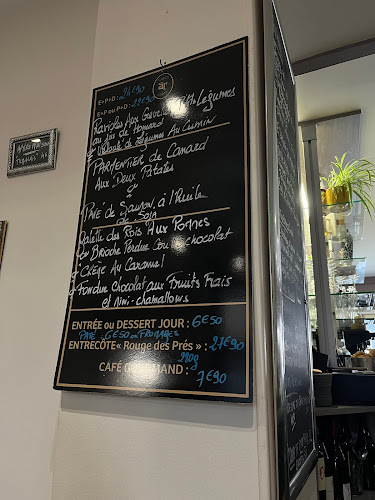 E+P+D : 24€90
E+P ou P+D : 22€90
Ravioles Aux Légumes
au jus de Homard
Velouté de Légumes Au Cumin
Parmentier de Canard
Aux Deux Patates
ou
Pavé de Saumon, à l'Huile
de Soja
Galette des Rois Aux Pommes
ou Brioche Perdue Chocolat
ou Crème Au Caramel
ou Fondue Chocolat aux Fruits Frais
et Mini-chamallows
ENTRÉE ou DESSERT JOUR : 6€50
PATE : 6€50 ou FROMAGES
ENTRECÔTE « Rouge des Prés » : 27€90
CAFÉ GOURMAND : 7€90